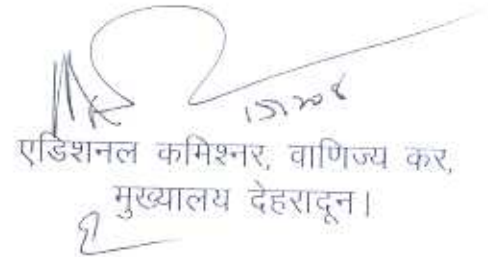 एडिशनल कमिश्नर, वाणिज्य कर,
मुख्यालय देहरादून।